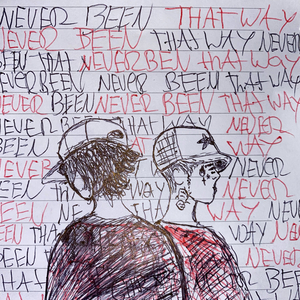 NEVER BEEN THAT WAY
NEVER BEEN THAT WAY NEVER
BEEN THAT NEVER BEN THAT WAY
NEVER BEEN NEVER BEEN THAT WAY
NEVER BEEN NEVER BEEN THAT WAY
NEVER BEEN THAT WAY NEVER
BEEN THAT WAY
NEVER NEVER
BEEN THAT WAY NEVER
BEEN NE WAY NEVER
BEEN THA WAY
NEVER NEVER
THAT BEEN